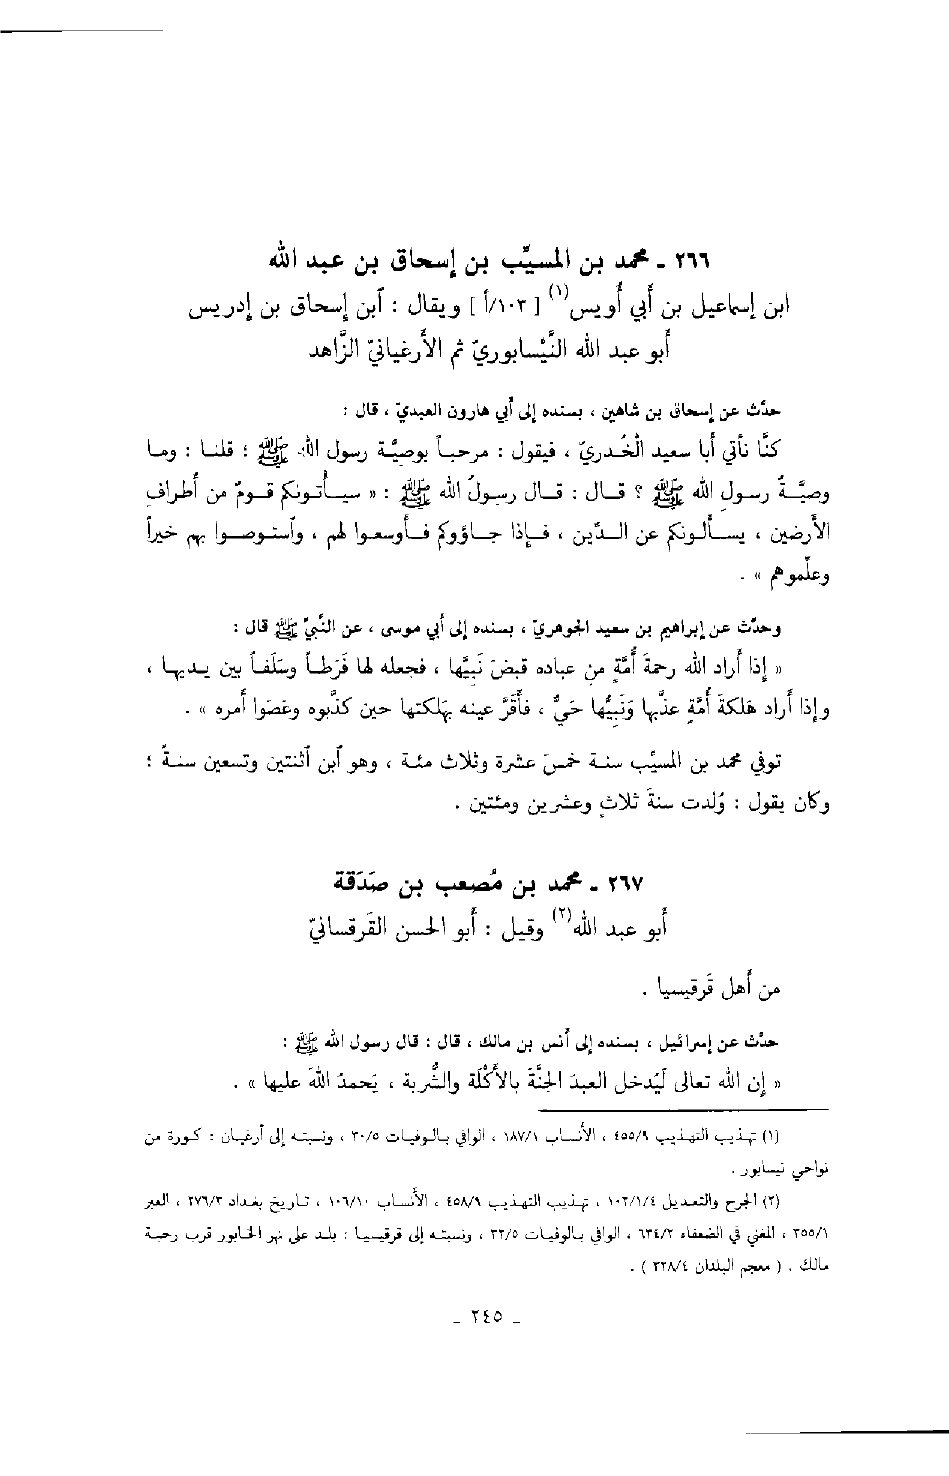 ٢٦٦ ـ محمد بن المسيَّب بن إسحاق بن عبد الله
ابن إسماعيل بن أبي أُويس(١) [ ١٠٣/أ ] ويقال : آبن إسحاق بن إدريس
أبو عبد الله النَّيْسابوريّ ثم الأَرغيانيّ الزَّاهد
حدَّث عن إسحاق بن شاهين ، بسنده إلى أبي هارون العبديّ ، قال :
كنَّا نأتي أبا سعيد الخُدريّ ، فيقول : مرحباً بوصيَّة رسول الله ﷺ ؛ قلنا : وما
وصيَّةُ رسولِ الله ﷺ ؟ قال : قال رسولُ الله ﷺ : « سيأتونكم قومٌ من أطرافِ
الأرضين ، يسألونكم عن الدِّين ، فإذا جاؤوكم فأوسعوا لهم ، وآستوصوا بهم خيراً
وعلِّموهم » .
وحدَّث عن إبراهيم بن سعيد الجوهريّ ، بسنده إلى أبي موسى ، عن النَّبيّ ﷺ قال :
« إذا أراد الله رحمةَ أُمَّةٍ من عباده قبضَ نَبيَّها ، فجعله لها فَرَطاً وسَلَفاً بين يديها ،
وإذا أراد هَلكةَ أُمَّةٍ عذَّبها ونَبيُّها حَيٌّ ، فأَقَرَّ عينه بهَلكتها حين كذَّبوه وعَصَوا أمره » .
توفي محمد بن المسيَّب سنة خمسَ عشرة وثلاث مئة ، وهو آبن آثنتين وتسعين سنةً ؛
وكان يقول : وُلدت سنةَ ثلاثٍ وعشرين ومئتين .
٢٦٧ ـ محمد بن مُصعب بن صَدَقة
أبو عبد الله(٢) وقيل : أبو الحسن القَرقسانيّ
من أهل قَرقيسيا .
حدَّث عن إسرائيل ، بسنده إلى أنس بن مالك ، قال : قال رسول الله ﷺ :
« إن الله تعالى لَيُدخل العبدَ الجنَّةَ بالأَكْلَة والشُّربة ، يَحمدُ اللهَ عليها » .
(١) تهذيب التهذيب ٤٥٥/٩ ، الأنساب ١٨٧/١ ، الوافي بالوفيات ٣٠/٥ ، ونسبته إلى أرغيان : كورة من
نواحي نيسابور .
(٢) الجرح والتعديل ١٠٢/١/٤ ، تهذيب التهذيب ٤٥٨/٩ ، الأنساب ١٠٦/١٠ ، تاريخ بغداد ٢٧٦/٣ ، العبر
٣٥٥/١ ، المغني في الضعفاء ٦٣٤/٢ ، الوافي بالوفيات ٣٢/٥ ، ونسبته إلى قرقيسيا : بلد على نهر الخابور قرب رحبة
مالك . ( معجم البلدان ٣٢٨/٤ ) .
ـ ٢٤٥ ـ